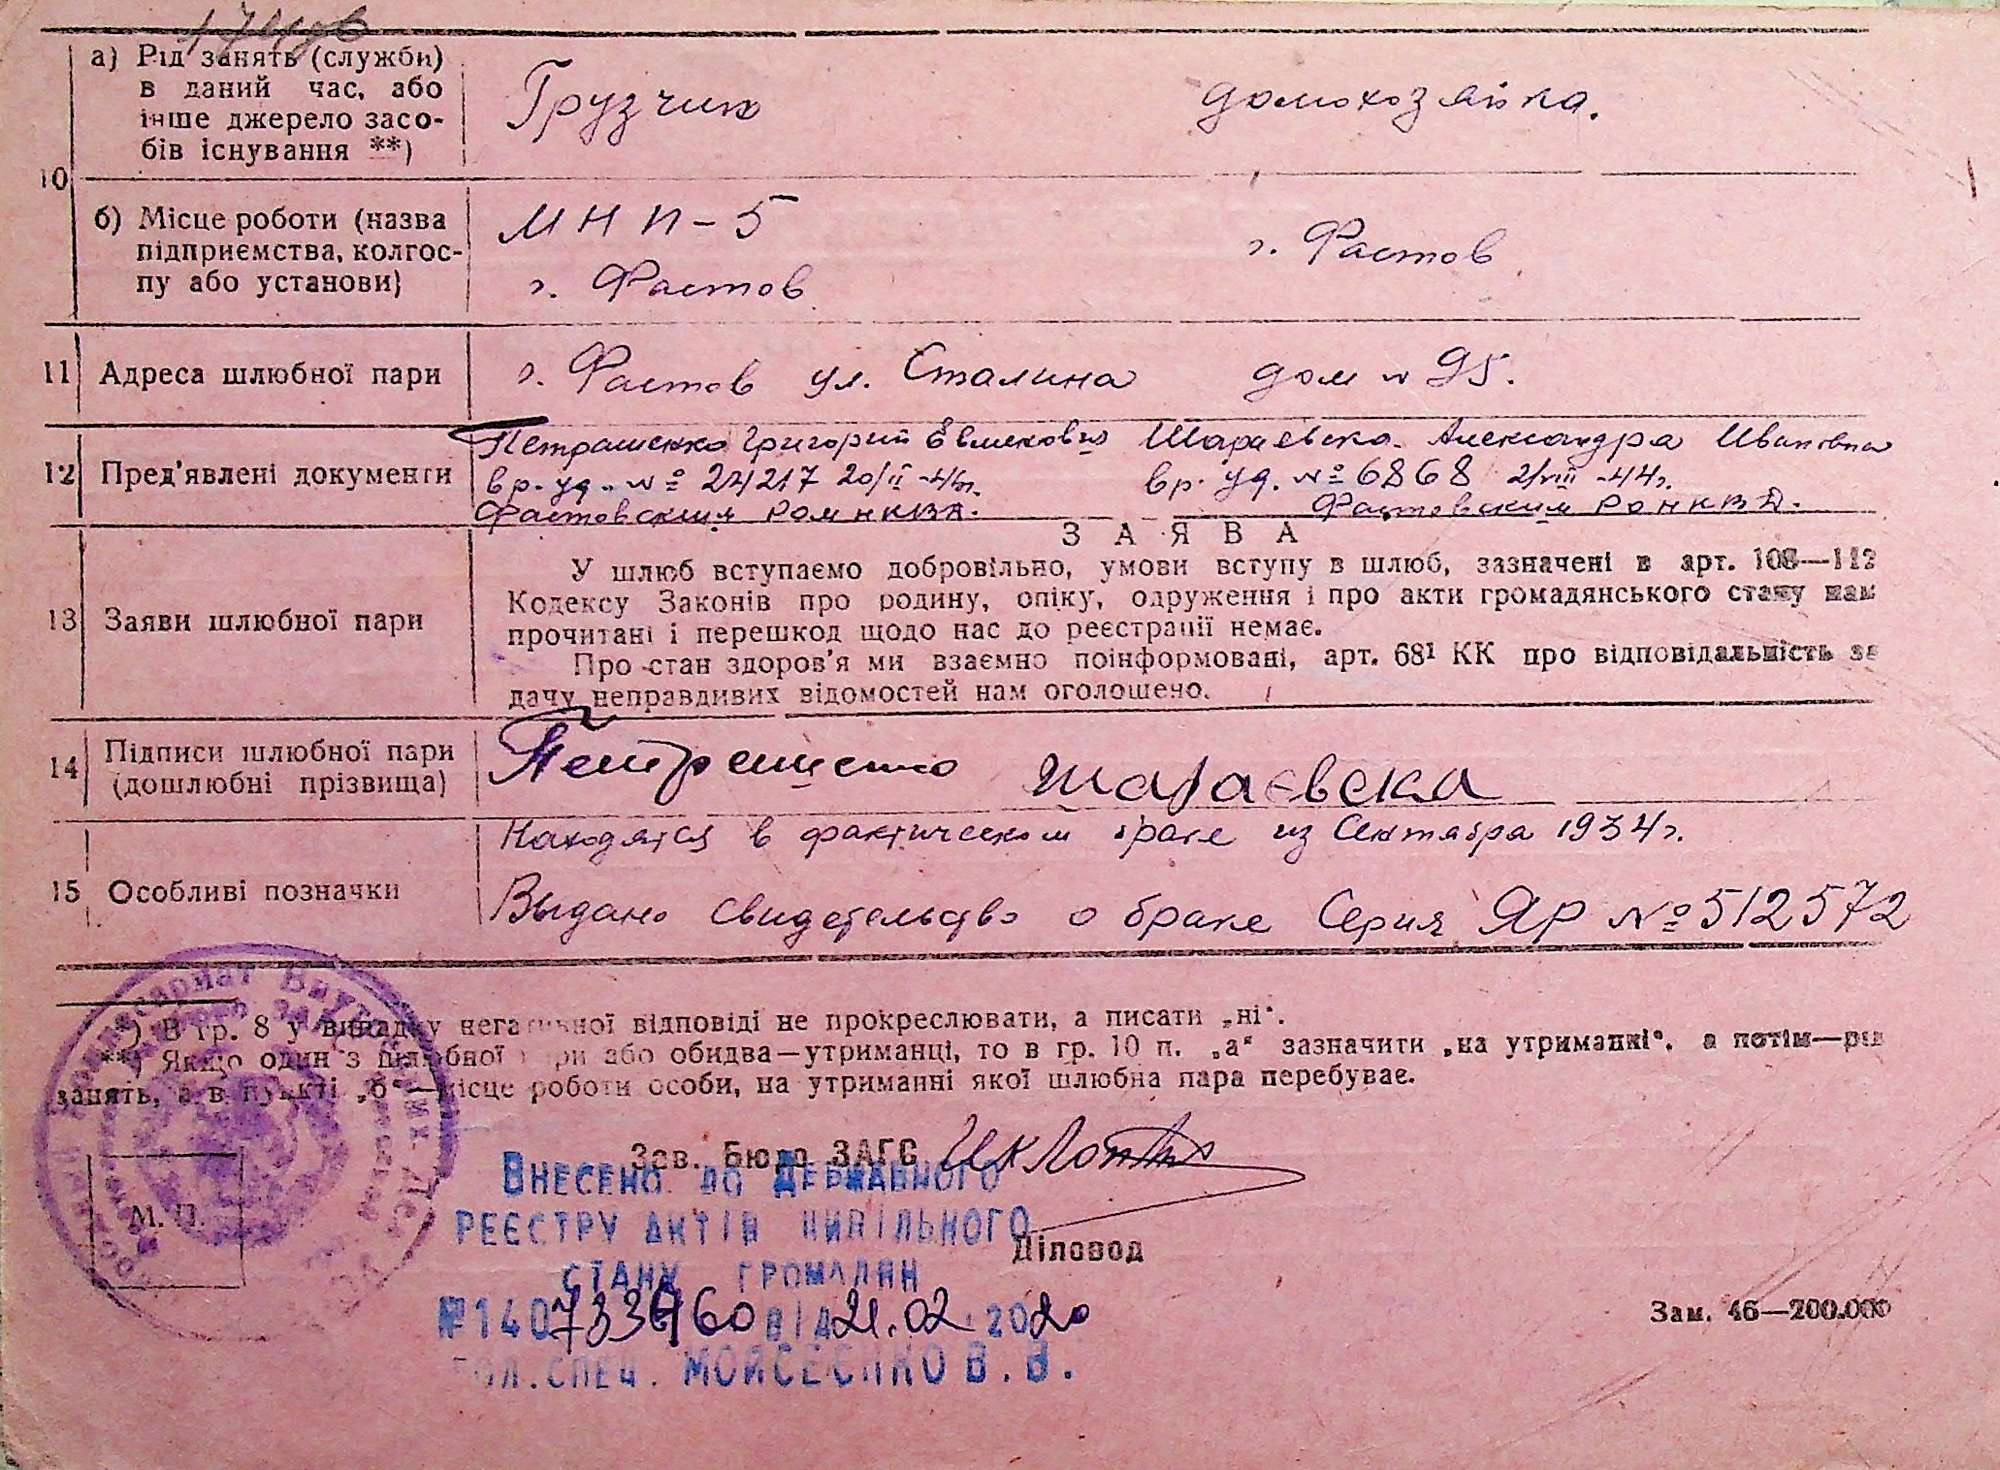 а) Рід занять (службы)
в даний час, або
інше джерело засо-
бів існування **)
Грузчик
домохозяйка.
10
б) Місце роботи (назва
підприємства, колгос-
пу або установи)
МНП-5
г. Фастов
г. Фастов
11 Адреса шлюбної пари
г. Фастов ул. Сталина дом № 95.
12 Пред'явлені документи
Петрашенко Григорий
вр. уд. № 24217 20/II-46г.
Фастовским РОМНКВД.
Шараевска Александра Ивановна
вр. уд. № 6868 2/VIII-44г.
Фастовским РОНКВД.
ЗАЯВА
13 Заяви шлюбної пари
У шлюб вступаємо добровільно, умови вступу в шлюб, зазначені в арт. 108—112
Кодексу Законів про родину, опіку, одруження і про акти громадянського стану нам
прочитані і перешкод щодо нас до реєстрації немає.
Про стан здоров'я ми взаємно поінформовані, арт. 68¹ КК про відповідальність за
дачу неправдивих відомостей нам оголошено.
14 Підписи шлюбної пари
(дошлюбні прізвища)
Петрашенко Шараєвска
15 Особливі позначки
Находятся в фактическом браке из Сентября 1934г.
Выдано свидетельство о браке Серия ЯР № 512572
*) В гр. 8 у випадку негативної відповіді не прокреслювати, а писати „ні“.
**) Якщо один з шлюбної пари або обидва—утриманці, то в гр. 10 п. „а“ зазначити „на утриманні“, а потім—рід
занять, а в пункті „б“—місце роботи особи, на утриманні якої шлюбна пара перебуває.
М. П.
Зав. Бюро ЗАГС
Внесено до Державного
реєстру актів цивільного
стану громадян
Діловод
№140733460 від 21.02.2020
гол.спец. Мойсеєнко В.В.
Зам. 46—200.000